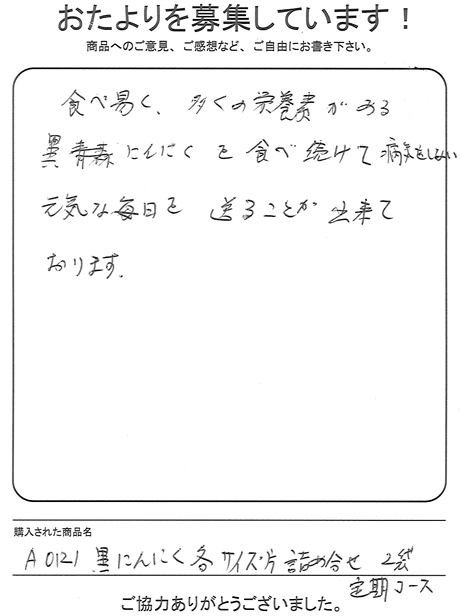 おたよりを募集しています！
商品へのご意見、ご感想など、ご自由にお書き下さい。
食べ易く、多くの栄養素がある
黒青森にんにくを食べ続けて病気をしない
元気な毎日を送ることが出来て
おります。
購入された商品名
A0121 黒にんにく各サイズ片詰め合せ 2袋
定期コース
ご協力ありがとうございました。